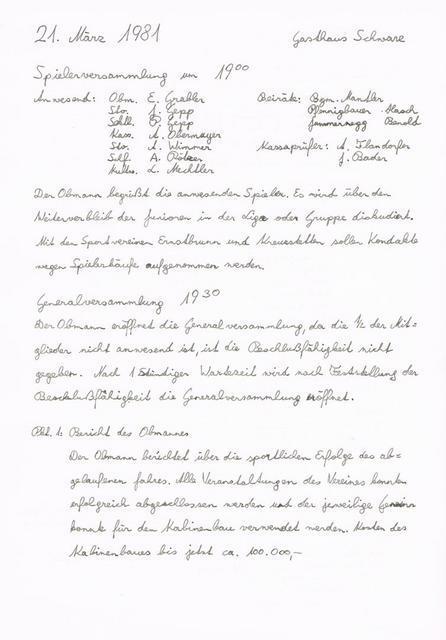 21. März 1981 Gasthaus Schwarz
Spielerversammlung um 19⁰⁰
Anwesend: Obm. E. Grabler Beiräte: Bgm. Mantler
Stv. J. Gepp Pfennigbauer
Schf. Gepp Jammernegg
Kass. A. Obermayer
Stv. A. Wimmer Kassaprüfer: A.
Schf. A. J. Bader
L. Mechtler
Der Obmann begrüßt die anwesenden Spieler. Es wird über den
Weiterverbleib der Junioren in der Liga oder Gruppe diskudiert.
Mit den Sportvereinen Ernstbrunn und sollen Kondakte
wegen Spielerkäufe aufgenommen werden.
Generalversammlung 19³⁰
Der Obmann eröffnet die Generalversammlung, da die ½ der Mit-
glieder nicht anwesend ist, ist die Beschlußfähigkeit nicht
gegeben. Nach 1 stündiger Wartezeit wird nach Feststellung der
Beschlußfähigkeit die Generalversammlung eröffnet.
Pkt. 1: Bericht des Obmannes
Der Obmann berichtet über die sportlichen Erfolge des ab-
gelaufenen Jahres. Alle Veranstaltungen des Vereines konnten
erfolgreich abgeschlossen werden und der jeweilige Gewinn
konnte für den Kabinenbau verwendet werden. Kosten des
Kabinenbaues bis jetzt ca. 100.000,-